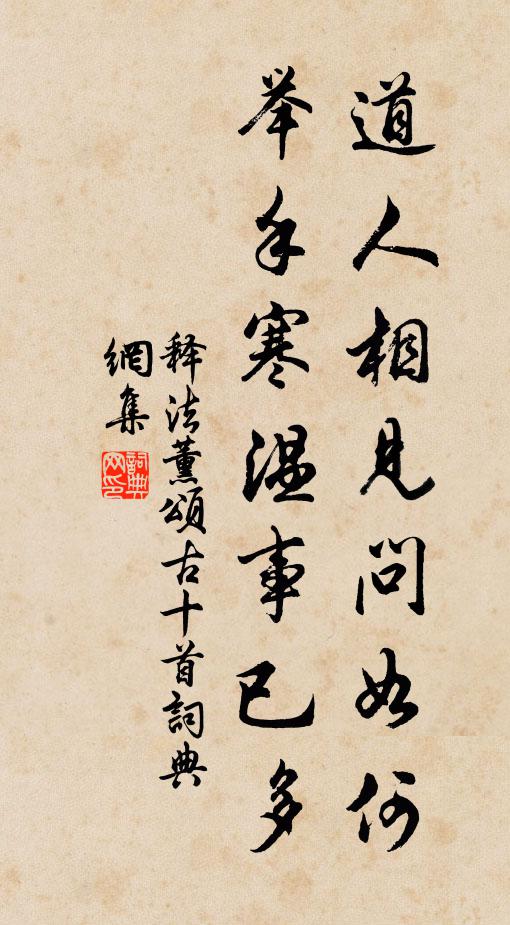 道人相見問如何
举手寒温事已多
释法薰頌古十首詞典
網集
詞典網印